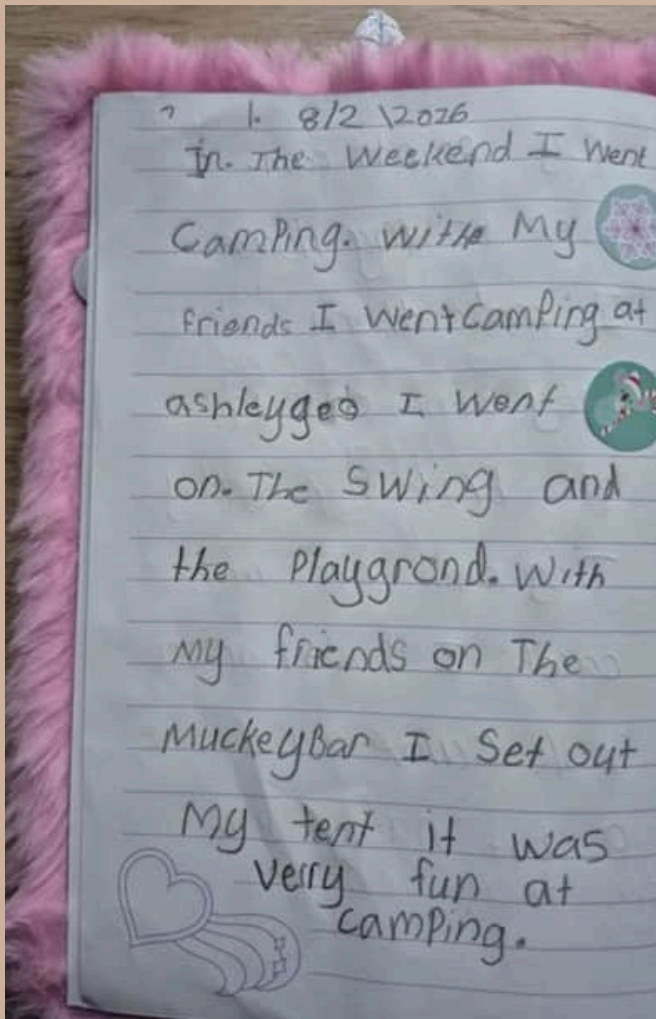 1. 8/2 \2026
In. The Weekend I Went
Camping. Withe My
friends I Went Camping at
ashleygeo I Went
on. The Swing and
the Playgrond. With
My friends on The
MuckeyBar I Set out
My tent it was
verry fun at
camping.